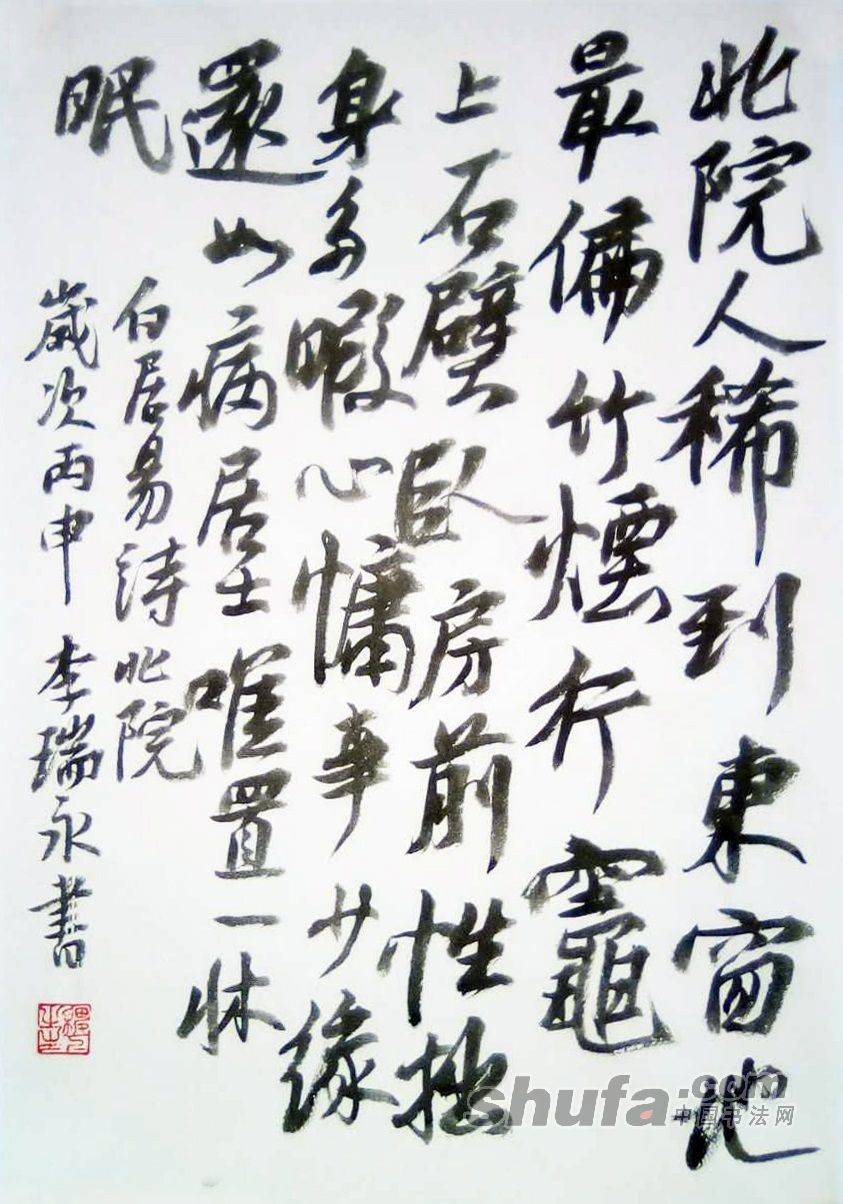 北院人稀到東窗地
最偏竹煙行竈
上石壁臥房前性拙
身多暇心慵事少緣
還如病居士唯置一牀
眠
白居易詩北院
歲次丙申李瑞永書
shufa.com
中国书法网